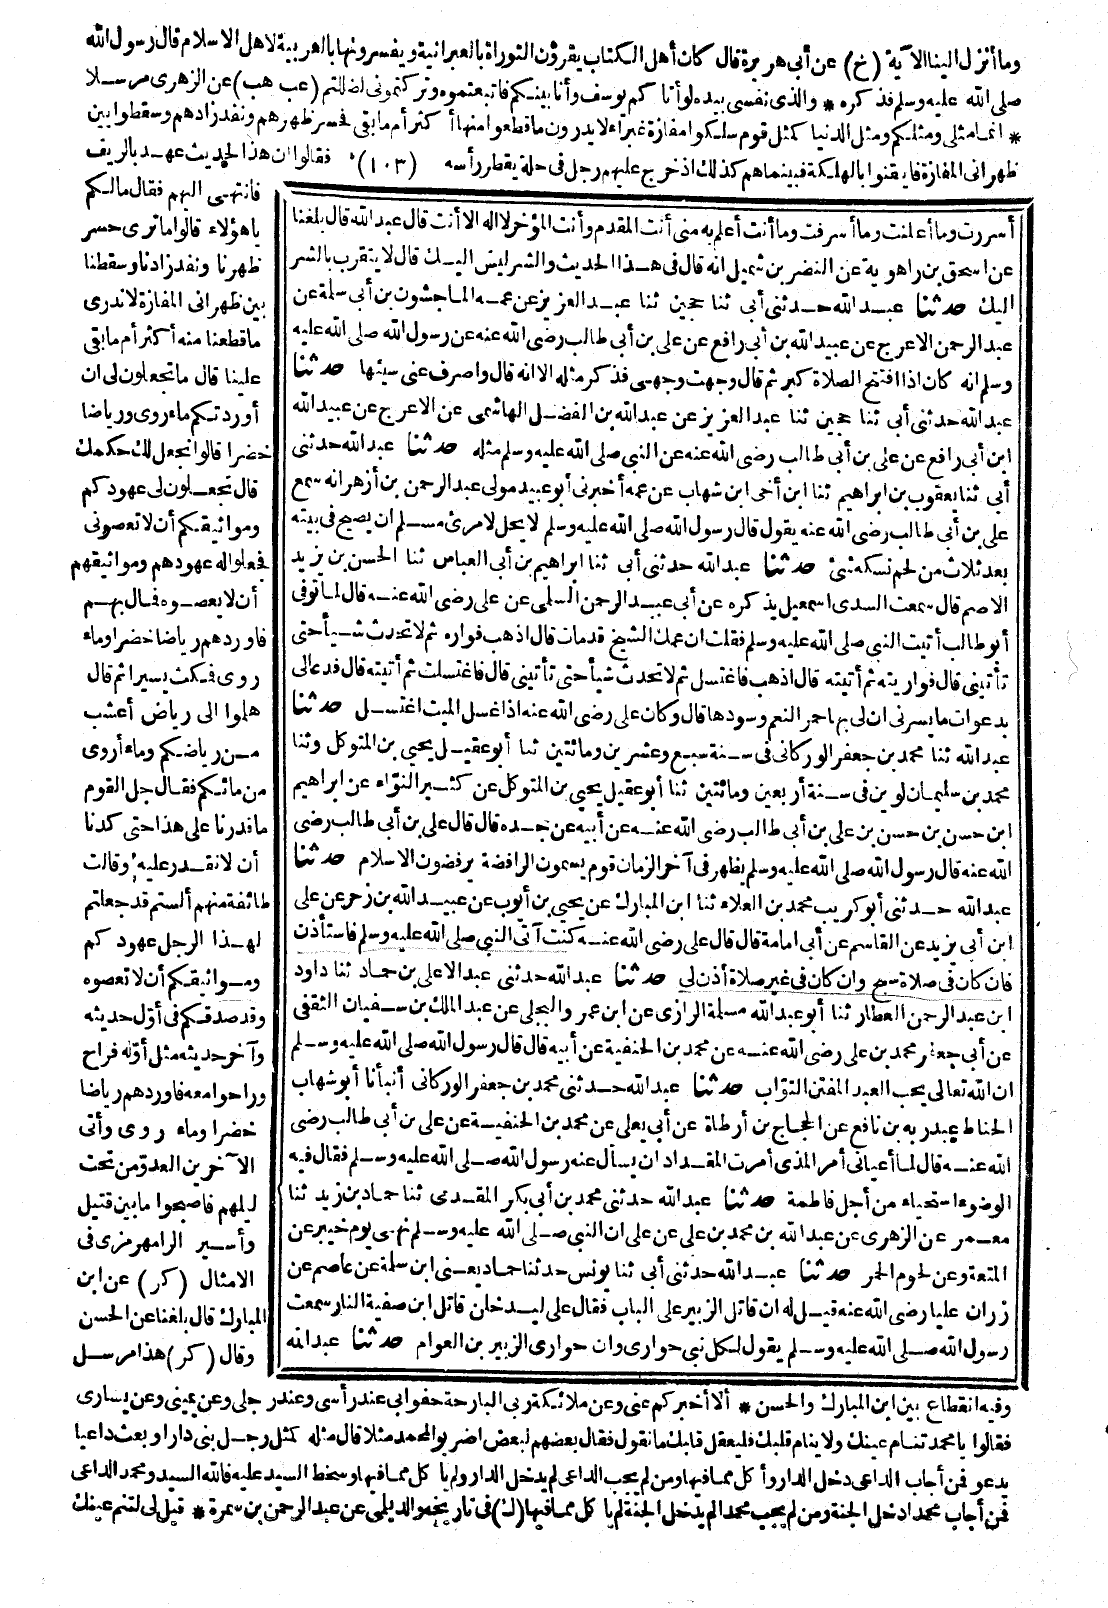 وما أنزل الينا الآية (خ) عن أبى هريرة قال كان أهل الكتاب يقرؤن التوراة بالعبرانية ويفسرونها بالعربية لاهل الاسلام قال رسول الله
صلى الله عليه وسلم فذكره * والذى نفسى بيده لو أتا كم يوسف وأنا بينكم فاتبعتموه وتركتمونى لضللتم (عب هب) عن الزهرى مرسلا
* انما مثلى ومثلكم ومثل الدنيا كمثل قوم سلكوا مفازة غبراء لا يدرون ما قطعوا منها أكثر أم ما بقى فحسر ظهرهم ونفد زادهم وسقطوا بين
ظهرانى المفازة فايقنوا بالهلكة فبينما هم كذلك اذ خرج عليهم رجل فى حلة يقطر رأسه (١٠٣) فقالوا ان هذا الحديث عهد بالريف
فانتهى اليهم فقال مالكم
ياهؤلاء قالوا ماترى حسر
ظهرنا ونفد زادنا وسقطنا
بين ظهرانى المفازة لاندرى
ماقطعنا منه أكثر أم مابقى
علينا قال ماتجعلون لى ان
أوردتكم ماء روى ورياضا
خضرا قالوا نجعل لك حكمك
قال تجعلون لى عهودكم
ومواثيقكم أن لا تعصونى
فجعلوا له عهودهم ومواثيقهم
أن لا يعصوه فمال بهم
فاوردهم رياضا خضرا وماء
روى فمكث يسيرا ثم قال
هلموا الى رياض أعشب
من رياضكم وماء أروى
من مائكم فقال جل القوم
ماقدرنا على هذا حتى كدنا
أن لا نقدر عليه وقالت
طائفة منهم ألستم قد جعلتم
لهذا الرجل عهودكم
ومواثيقكم أن لا تعصوه
وقد صدقكم فى أول حديثه
وآخر حديثه مثل أوله فراح
وراحوا معه فاوردهم رياضا
خضرا وماء روى وأتى
الآخرين العدو من تحت
ليلهم فاصبحوا مابين قتيل
وأسير الرامهرمزى فى
الامثال (كر) عن ابن
المبارك قال بلغنا عن الحسن
وقال (كر) هذا مرسل
أسررت وما أعلنت وما أسرفت وما أنت أعلم به منى أنت المقدم وأنت المؤخر لا اله الا أنت قال عبد الله قال بلغنا
عن اسحق بن راهوية عن النضر بن شميل انه قال فى هذا الحديث والشر ليس اليك قال لا يتقرب بالشر
اليك حدثنا عبد الله حدثنى أبى ثنا حجين ثنا عبد العزيز عن عمه الماجشون بن أبى سلمة عن
عبد الرحمن الاعرج عن عبيد الله بن أبى رافع عن على بن أبى طالب رضى الله عنه عن رسول الله صلى الله عليه
وسلم انه كان اذا افتتح الصلاة كبر ثم قال وجهت وجهى فذكر مثله الا انه قال واصرف عنى سيئها حدثنا
عبد الله حدثنى أبى ثنا حجين ثنا عبد العزيز عن عبد الله بن الفضل الهاشمى عن الاعرج عن عبيد الله
ابن أبى رافع عن على بن أبى طالب رضى الله عنه عن النبى صلى الله عليه وسلم مثله حدثنا عبد الله حدثنى
أبى ثنا يعقوب بن ابراهيم ثنا ابن أخى ابن شهاب عن عمه أخبرنى أبو عبيد مولى عبد الرحمن بن أزهر انه سمع
على بن أبى طالب رضى الله عنه يقول قال رسول الله صلى الله عليه وسلم لا يحل لامرئ مسلم ان يصبح فى بيته
بعد ثلاث من لحم نسكه شئ حدثنا عبد الله حدثنى أبى ثنا ابراهيم بن أبى العباس ثنا الحسن بن يزيد
الاصم قال سمعت السدى اسمعيل يذكره عن أبى عبد الرحمن السلمى عن على رضى الله عنه قال لما توفى
أبو طالب أتيت النبى صلى الله عليه وسلم فقلت ان عمك الشيخ قد مات قال اذهب فواره ثم لا تحدث شيأ حتى
تأتينى قال فواريته ثم أتيته قال اذهب فاغتسل ثم لا تحدث شيأ حتى تأتينى قال فاغتسلت ثم أتيته قال فدعا لى
بدعوات ما يسرنى ان لى بها حمر النعم وسودها قال وكان على رضى الله عنه اذا غسل الميت اغتسل حدثنا
عبد الله ثنا محمد بن جعفر الوركانى فى سنة سبع وعشرين ومائتين ثنا أبو عقيل يحيى بن المتوكل وثنا
محمد بن سليمان لوين فى سنة أربعين ومائتين ثنا أبو عقيل يحيى بن المتوكل عن كثير النواء عن ابراهيم
ابن حسن بن حسن بن على بن أبى طالب رضى الله عنه عن أبيه عن جده قال قال على بن أبى طالب رضى
الله عنه قال رسول الله صلى الله عليه وسلم يظهر فى آخر الزمان قوم يسمون الرافضة يرفضون الاسلام حدثنا
عبد الله حدثنى أبو كريب محمد بن العلاء ثنا ابن المبارك عن يحيى بن أيوب عن عبيد الله بن زحر عن على
ابن أبى يزيد عن القاسم عن أبى امامة قال قال على رضى الله عنه كنت آتى النبى صلى الله عليه وسلم فاستأذن
فان كان فى صلاة سبح وان كان فى غير صلاة أذن لى حدثنا عبد الله حدثنى عبد الاعلى بن حماد ثنا داود
ابن عبد الرحمن العطار ثنا أبو عبد الله مسلمة الرازى عن ابن عمرو البجلى عن عبد الملك بن سفيان الثقفى
عن أبى جعفر محمد بن على رضى الله عنه عن محمد بن الحنفية عن أبيه قال قال رسول الله صلى الله عليه وسلم
ان الله تعالى يحب العبد المفتن التواب حدثنا عبد الله حدثنى محمد بن جعفر الوركانى أنبأنا أبو شهاب
الحناط عبد ربه بن نافع عن الحجاج بن أرطاة عن أبى يعلى عن محمد بن الحنفية عن على بن أبى طالب رضى
الله عنه قال لما أعيانى أمر المذى أمرت المقداد ان يسأل عنه رسول الله صلى الله عليه وسلم فقال فيه
الوضوء استحياء من أجل فاطمة حدثنا عبد الله حدثنى محمد بن أبى بكر المقدمى ثنا حماد بن زيد ثنا
معمر عن الزهرى عن عبد الله بن محمد بن على عن على ان النبى صلى الله عليه وسلم نهى يوم خيبر عن
المتعة وعن لحوم الحمر حدثنا عبد الله حدثنى أبى ثنا يونس حدثنا حماد يعنى ابن سلمة عن عاصم عن
زر ان عليا رضى الله عنه قيل له ان قاتل الزبير على الباب فقال على ليدخلن قاتل ابن صفية النار سمعت
رسول الله صلى الله عليه وسلم يقول لكل نبى حوارى وان حوارى الزبير بن العوام حدثنا عبد الله
وفيه انقطاع بين ابن المبارك والحسن * ألا أخبركم عنى وعن ملائكة ربى البارحة حفوا بى عند رأسى وعند رجلى وعن يمينى وعن يسارى
فقالوا يا محمد تنام عينك ولا ينام قلبك فليعقل قلبك ما نقول فقال بعضهم لبعض اضربوا لمحمد مثلا قال مثله كمثل رجل بنى دارا وبعث داعيا
يدعو فمن أجاب الداعى دخل الدار وأكل مما فيها ومن لم يجب الداعى لم يدخل الدار ولم يأكل مما فيها وسخط السيد عليه فالله السيد ومحمد الداعى
فمن أجاب محمدا دخل الجنة ومن لم يجب محمدا لم يدخل الجنة لم يأكل مما فيها (ك) فى تاريخه والديلمى عن عبد الرحمن بن سمرة * قيل لى لتنم عينك